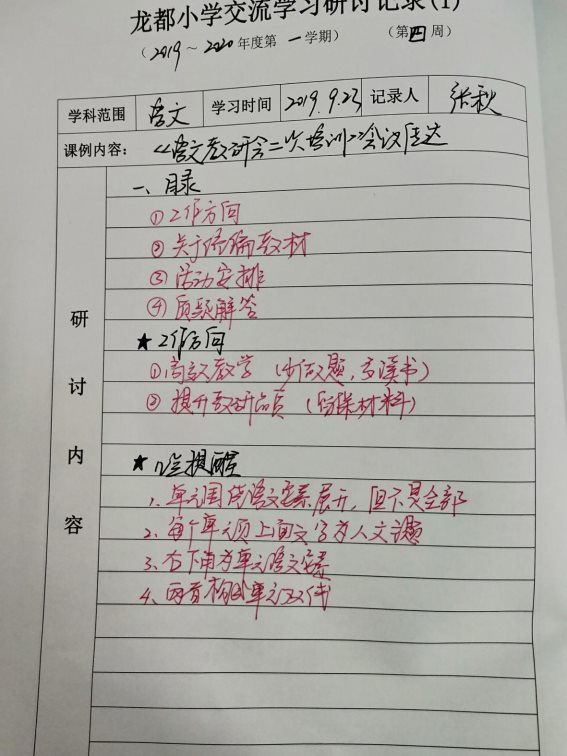 龙都小学交流学习研讨记录(1)
(2019~2020年度第一学期) (第四周)
学科范围 语文 学习时间 2019.9.23 记录人 张秋
课例内容: 《语文教研会二次培训》会议传达
研讨内容
一、目录
①工作方向
②关于统编教材
③活动安排
④质疑解答
★工作方向
①高效教学(少做题,多读书)
②提升教研品质(留保材料)
★提醒
1、单元围绕语文要素展开,但不是全部
2、每个单元页上面文字为人文主题
3、右下角为单元语文要素
4、单元